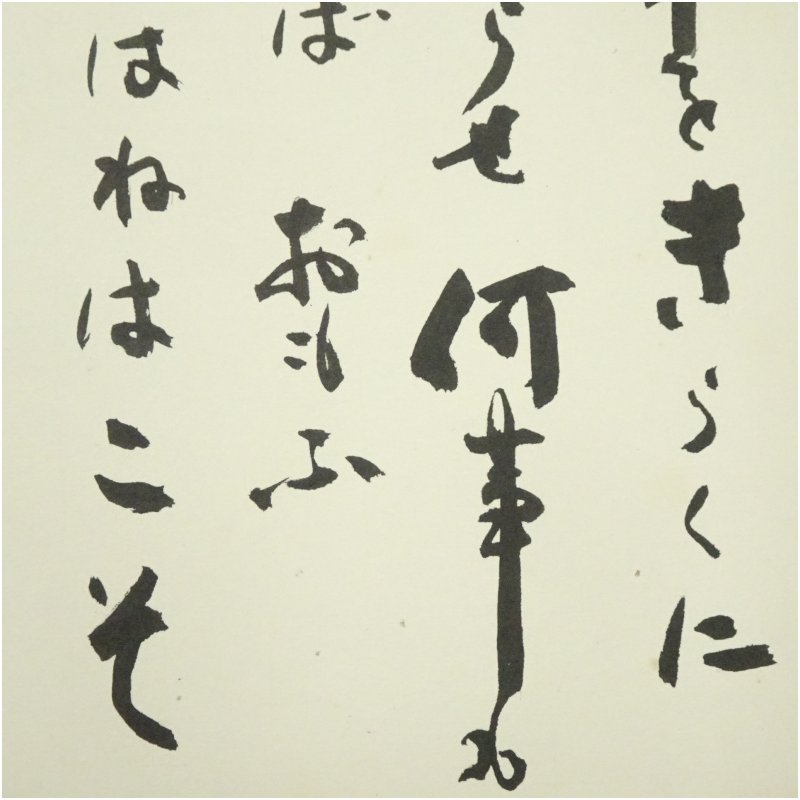 をきらくに
らせ 何事も
ば おもふ
はねはこそ